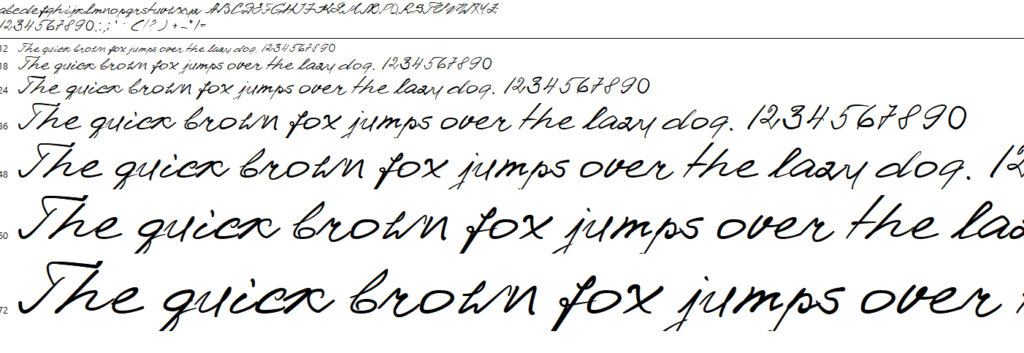 abcdefghijklmnopqrstuvwxyz ABCDEFGHIJKLMNOPQRSTUVWXYZ
1234567890.:,;'" (!?) +-*/=
12 The quick brown fox jumps over the lazy dog. 1234567890
18 The quick brown fox jumps over the lazy dog. 1234567890
24 The quick brown fox jumps over the lazy dog. 1234567890
36 The quick brown fox jumps over the lazy dog. 1234567890
48 The quick brown fox jumps over the lazy dog. 12
60 The quick brown fox jumps over the laz
72 The quick brown fox jumps over